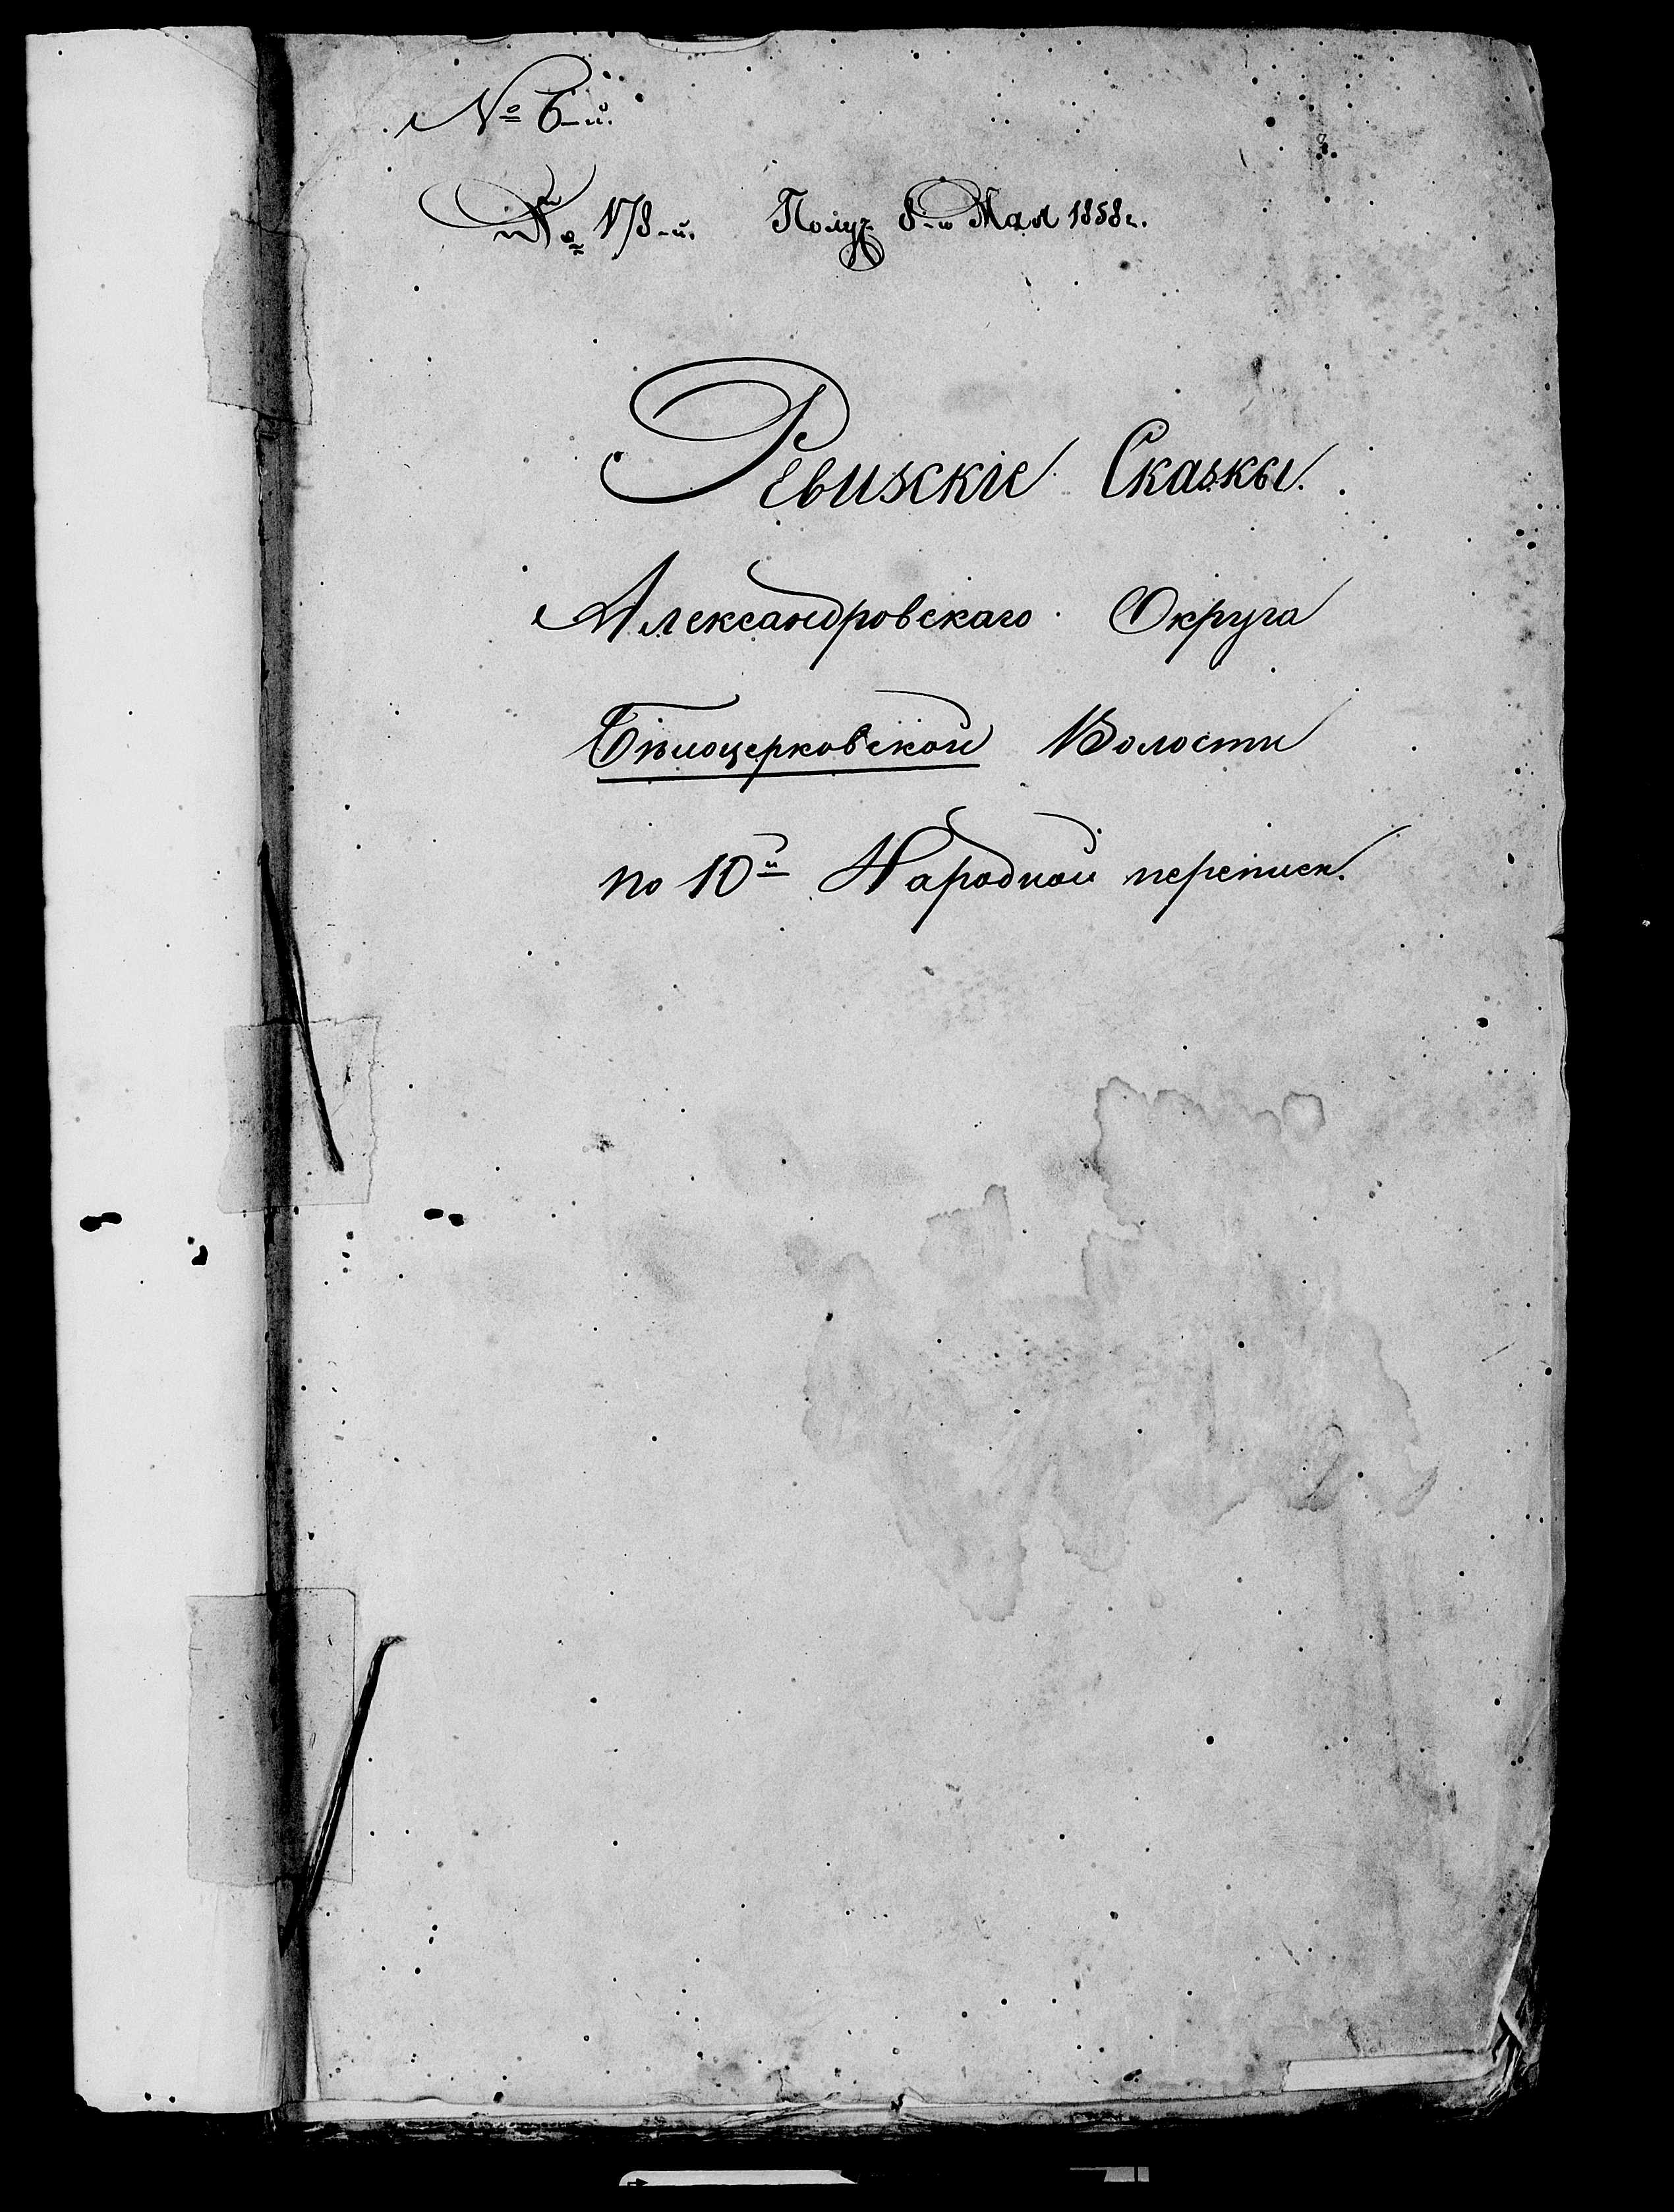 № 6-й.
№ 178-й. Получ. 8-го Мая 1858 г.
Ревизскіе Сказки.
Александровскаго Округа
Бѣлоцерковской Волости
по 10й Народной переписи.